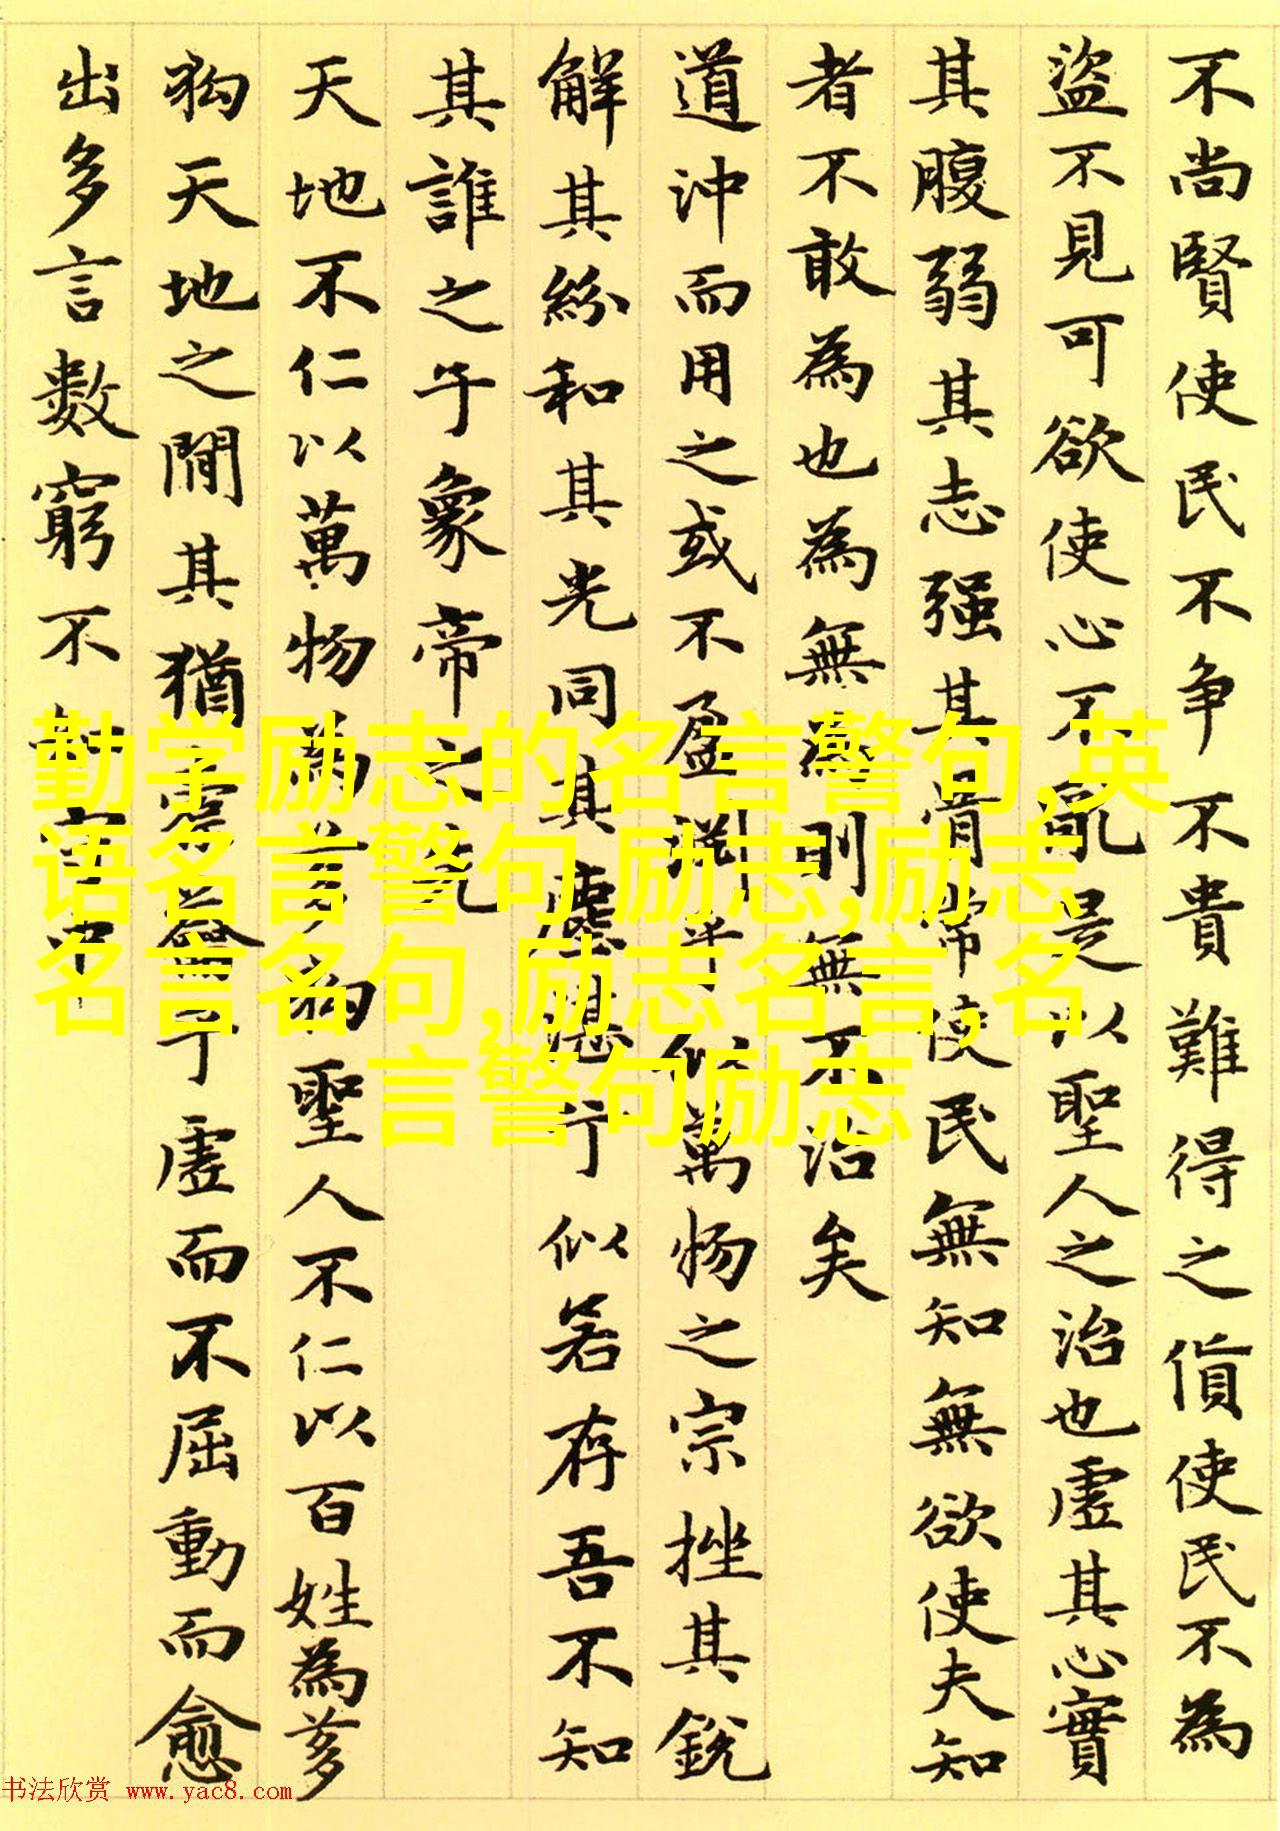 不尚賢使民不争不貴難得之貨使民不為
盜不見可欲使心不亂是以聖人之治也虛其心實
其腹弱其志强其骨常使民無知無欲使夫知
者不敢為也為無為則無不治矣
道沖而用之或不盈淵乎似萬物之宗挫其銳
解其紛和其光同其塵湛兮似若存吾不知
其誰之子象帝之先
天地不仁以萬物為芻狗聖人不仁以百姓為芻
狗天地之間其猶橐籥乎虛而不屈動而愈
出多言數窮不如守中
勤学励志的名言警句,英
语名言警句 励志,励志
名言名句,励志名言,名
言警句励志
书法欣赏 www.yac8.com